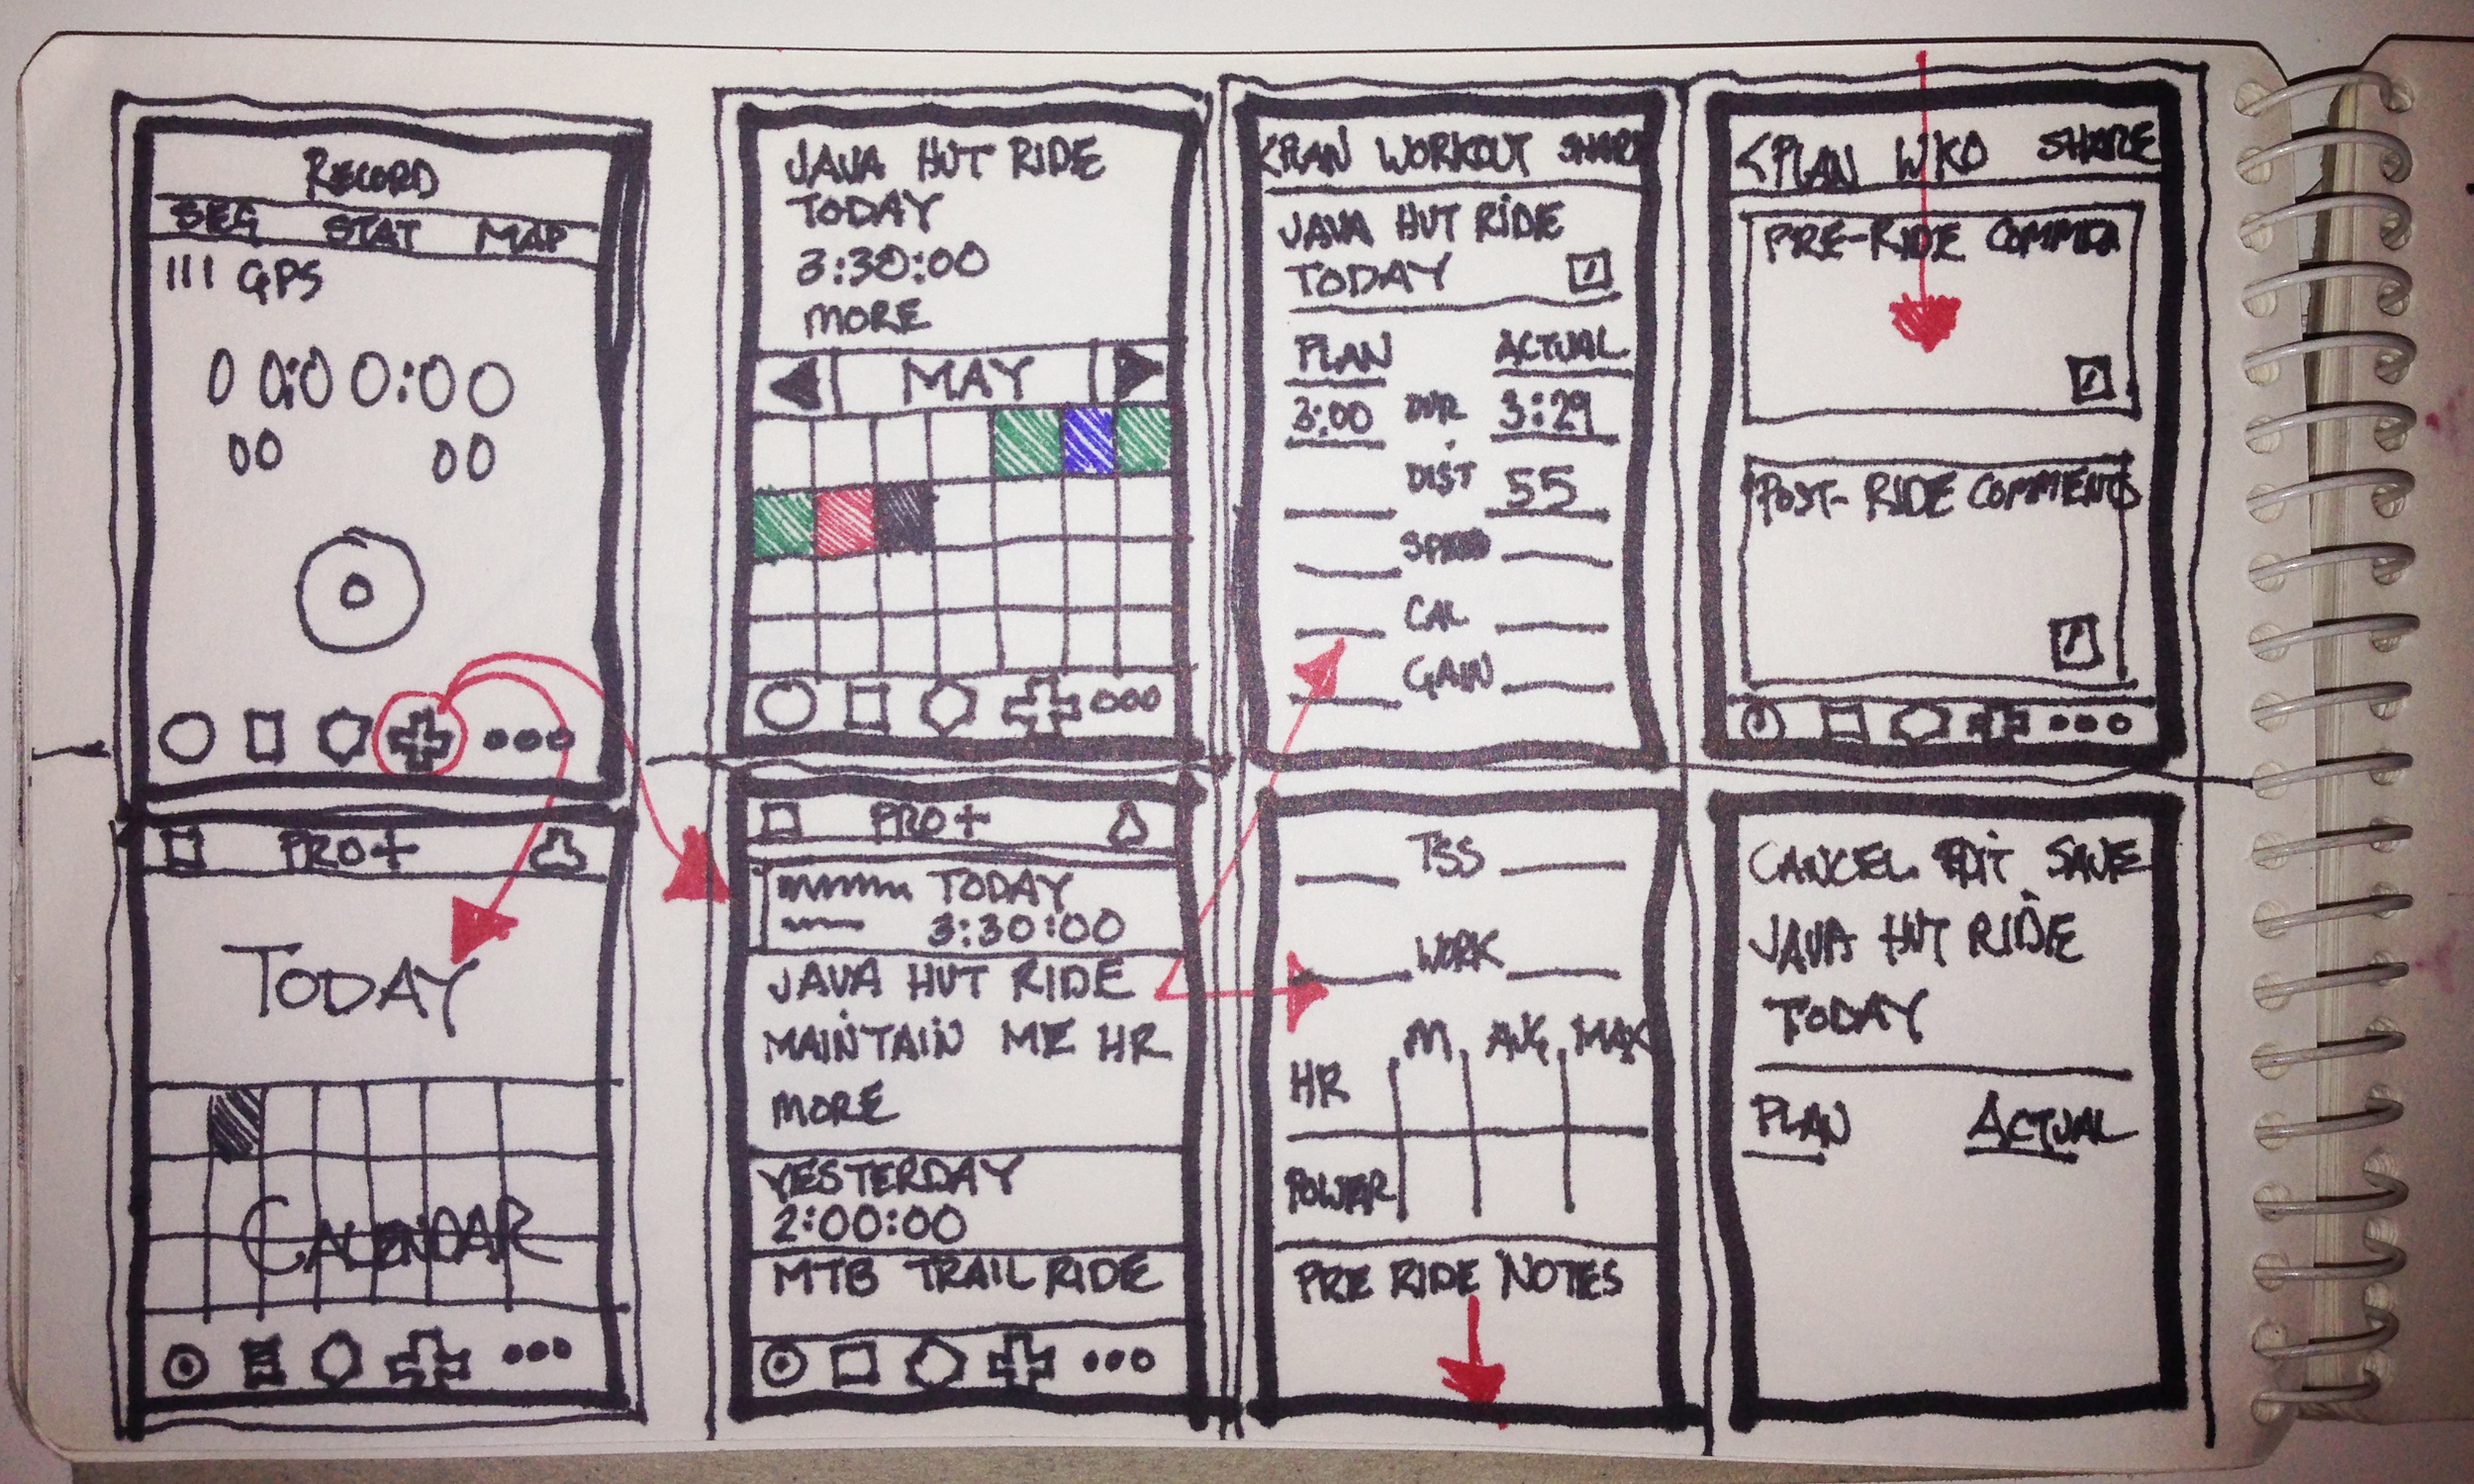 RECORD
SEG STAT MAP
GPS
00:00:00
00 00
PRO+
TODAY
CALENDAR
JAVA HUT RIDE
TODAY
3:30:00
MORE
MAY
PRO+
TODAY
3:30:00
JAVA HUT RIDE
MAINTAIN ME HR
MORE
YESTERDAY
2:00:00
MTB TRAIL RIDE
<PLAN WORKOUT SHARE
JAVA HUT RIDE
TODAY
PLAN ACTUAL
3:00 DUR 3:29
DIST 55
SPEED
CAL
GAIN
TSS
WORK
M AVG MAX
HR
POWER
PRE RIDE NOTES
<PLAN WKO SHARE
PRE-RIDE
POST-RIDE COMMENTS
CANCEL EDIT SAVE
JAVA HUT RIDE
TODAY
PLAN ACTUAL